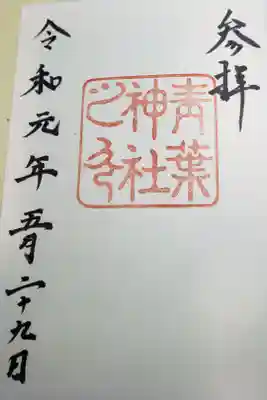 参拝
青葉
神社
之印
令和元年五月二十九日